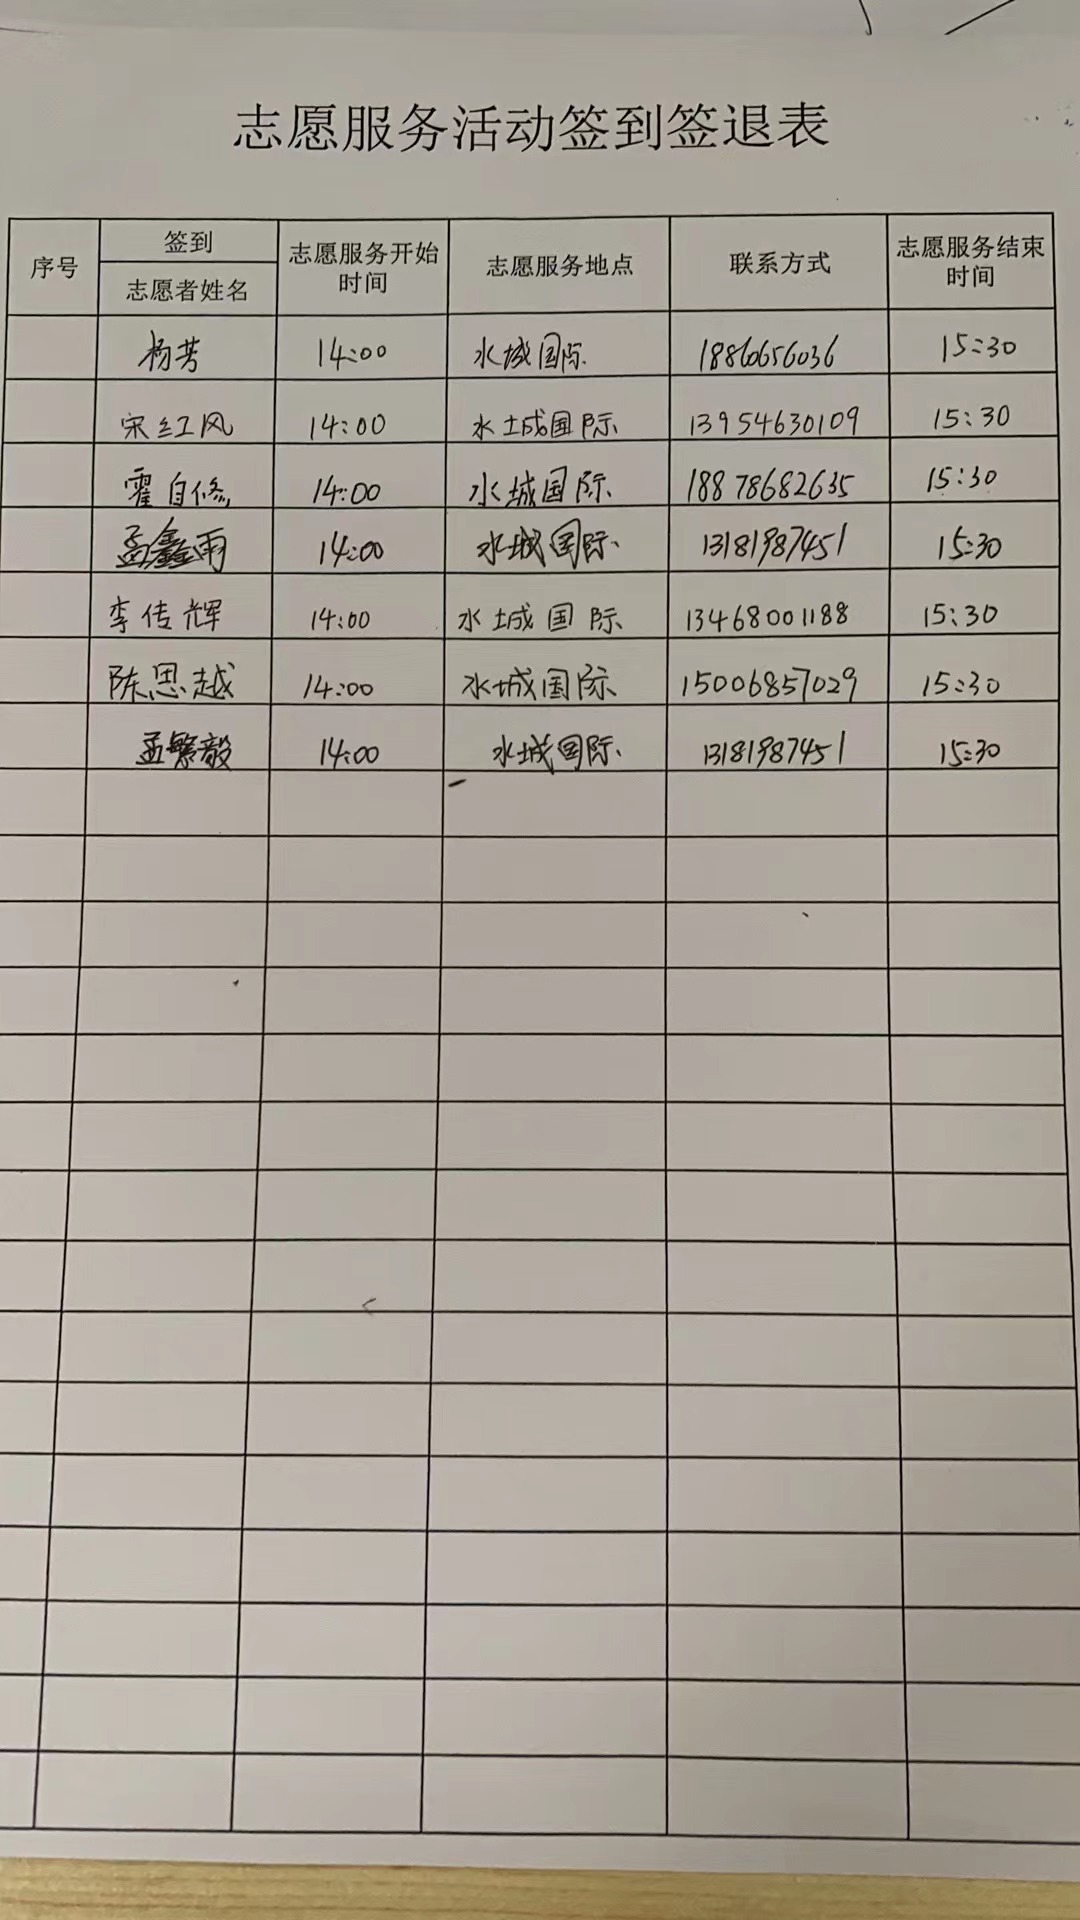 志愿服务活动签到签退表
序号 签到 志愿者姓名 志愿服务开始时间 志愿服务地点 联系方式 志愿服务结束时间
杨芳 14:00 水城国际 18860656036 15:30
宋红风 14:00 水城国际 13954630109 15:30
霍自修 14:00 水城国际 18878682635 15:30
孟鑫雨 14:00 水城国际 13181987451 15:30
李传辉 14:00 水城国际 13468001188 15:30
陈思越 14:00 水城国际 15006857029 15:30
孟繁毅 14:00 水城国际 13181987451 15:30